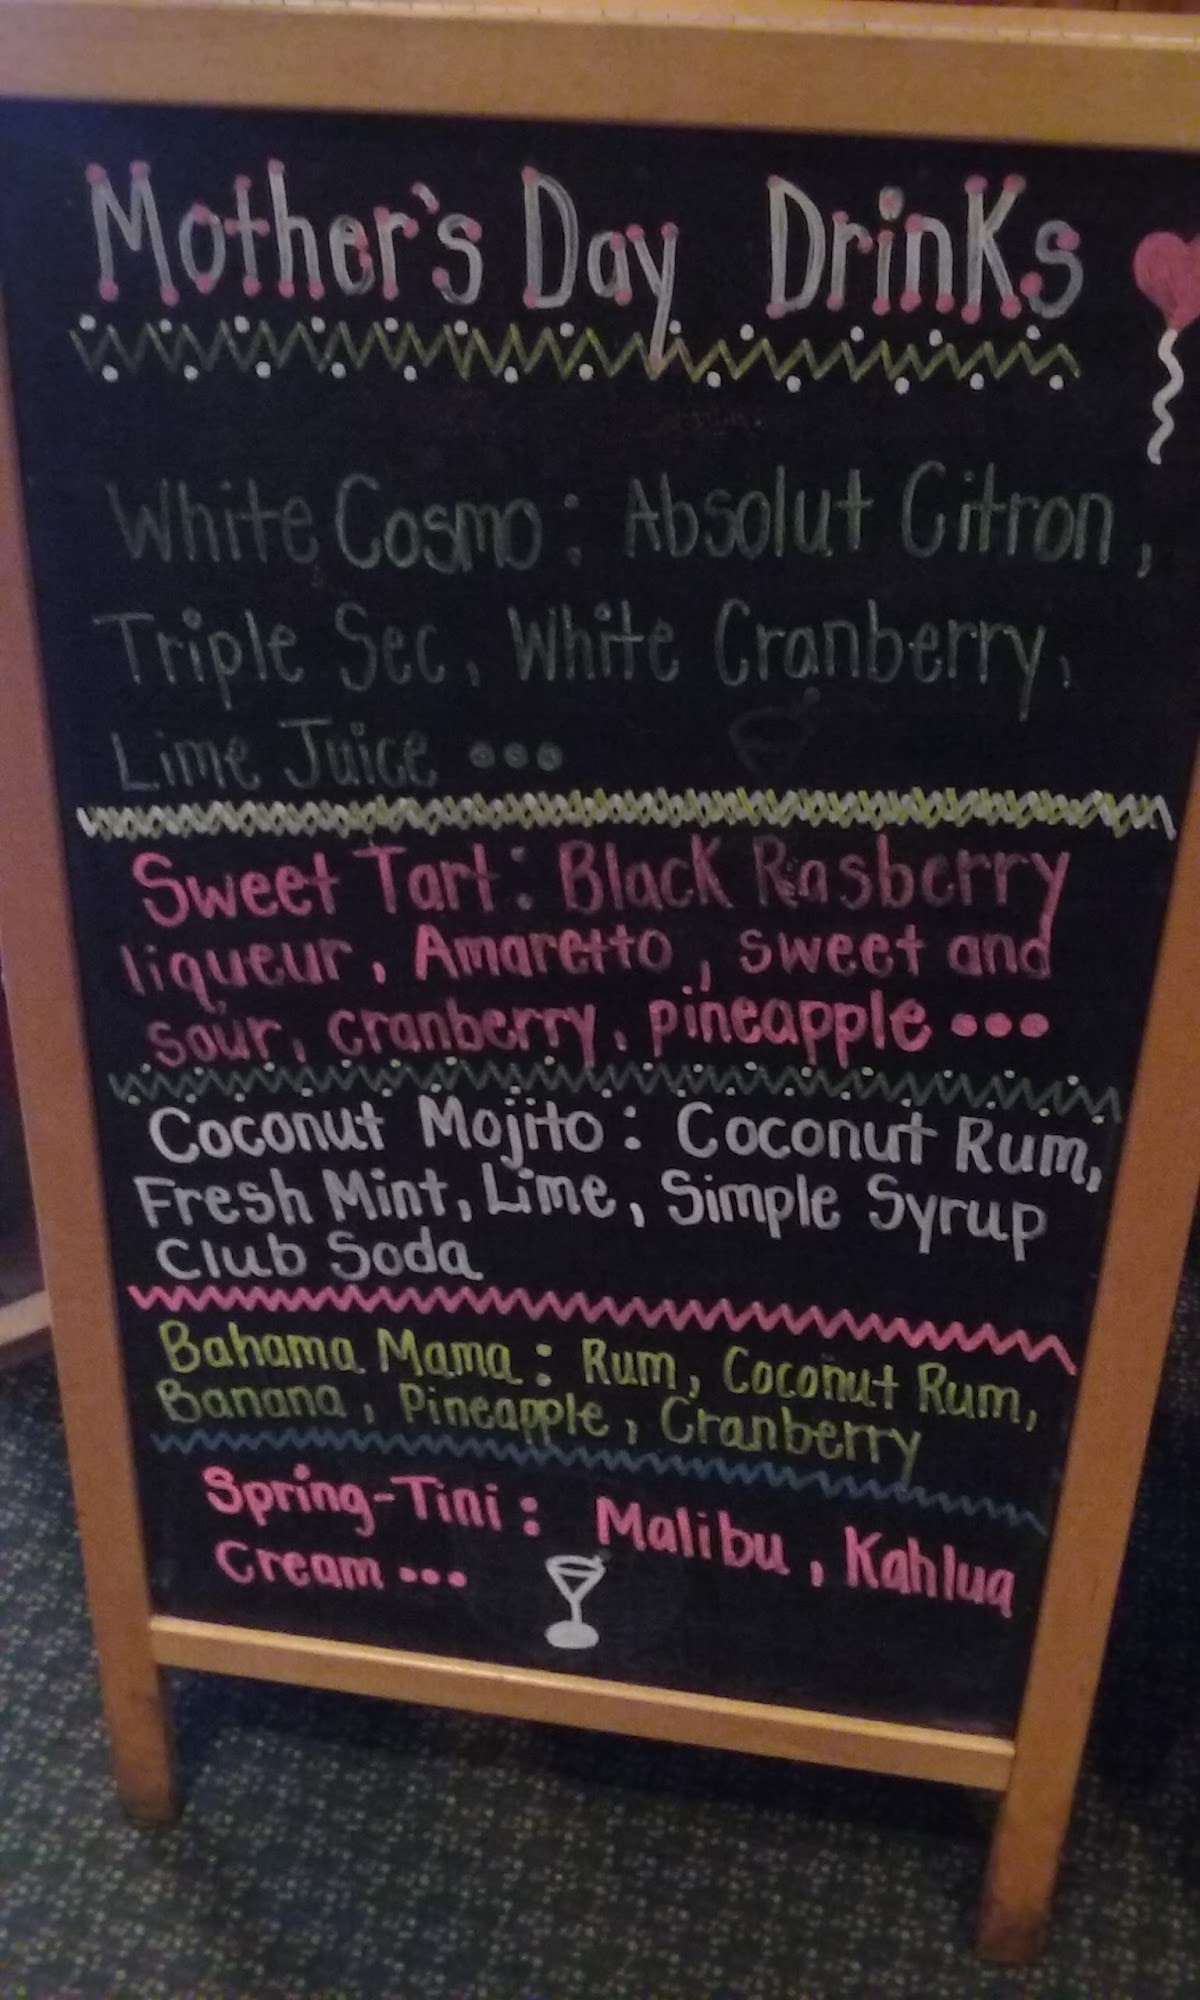 Mother's Day Drinks
White Cosmo: Absolut Citron,
Triple Sec, White Cranberry,
Lime Juice •••
Sweet Tart: Black Rasberry
liqueur, Amaretto, sweet and
sour, cranberry, pineapple •••
Coconut Mojito: Coconut Rum,
Fresh Mint, Lime, Simple Syrup
Club Soda
Bahama Mama: Rum, Coconut Rum,
Banana, Pineapple, Cranberry
Spring-Tini: Malibu, Kahlua
Cream •••